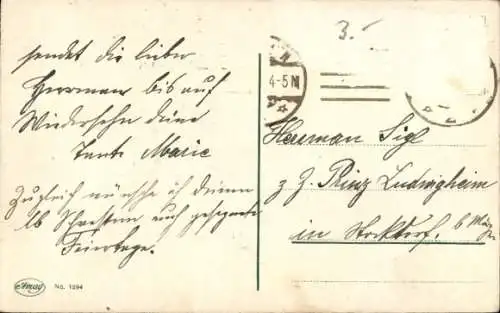 sendet dir lieber
Herrman bis auf
Wiedersehn deine
Tante Marie
Zugleich wünsche ich deinen
lb Schwestern auch gesegnete
Feiertage!
3.-
4-5 N
Herrman Sigl
z Z. Prinz Ludwigsheim
in Stockdorf. b
Amag
No. 1294